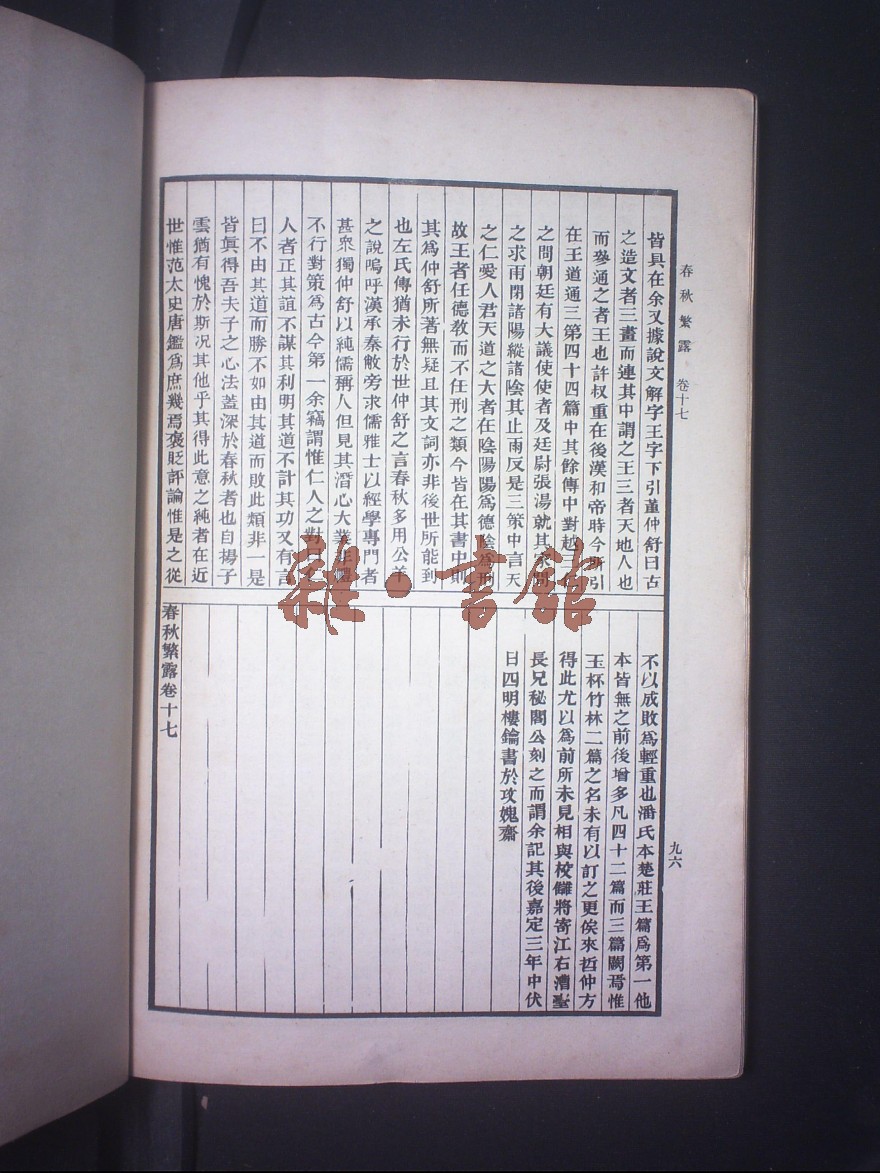 春秋繁露 卷十七
九六
皆具在余又據說文解字王字下引董仲舒曰古
之造文者三畫而連其中謂之王三者天地人也
而參通之者王也許叔重在後漢和帝時今所引
在王道通三第四十四篇中其餘傳中對越三仁
之問朝廷有大議使使者及廷尉張湯就其家問
之求雨閉諸陽縱諸陰其止雨反是三策中言天
之仁愛人君天道之大者在陰陽陽爲德陰爲刑
故王者任德敎而不任刑之類今皆在其書中則
其爲仲舒所著無疑且其文詞亦非後世所能到
也左氏傳猶未行於世仲舒之言春秋多用公羊
之說嗚呼漢承秦敝旁求儒雅士以經學專門者
甚衆獨仲舒以純儒稱人但見其潛心大業非禮
不行對策爲古今第一余竊謂惟仁人之對曰仁
人者正其誼不謀其利明其道不計其功又有言
曰不由其道而勝不如由其道而敗此類非一是
皆眞得吾夫子之心法蓋深於春秋者也自揚子
雲猶有愧於斯况其他乎其得此意之純者在近
世惟范太史唐鑑爲庶幾焉褒貶評論惟是之從
不以成敗爲輕重也潘氏本楚莊王篇爲第一他
本皆無之前後增多凡四十二篇而三篇闕焉惟
玉杯竹林二篇之名未有以訂之更俟來哲仲方
得此尤以爲前所未見相與校讎將寄江右漕臺
長兄秘閣公刻之而謂余記其後嘉定三年中伏
日四明樓鑰書於攻媿齋
春秋繁露卷十七
雜·書館